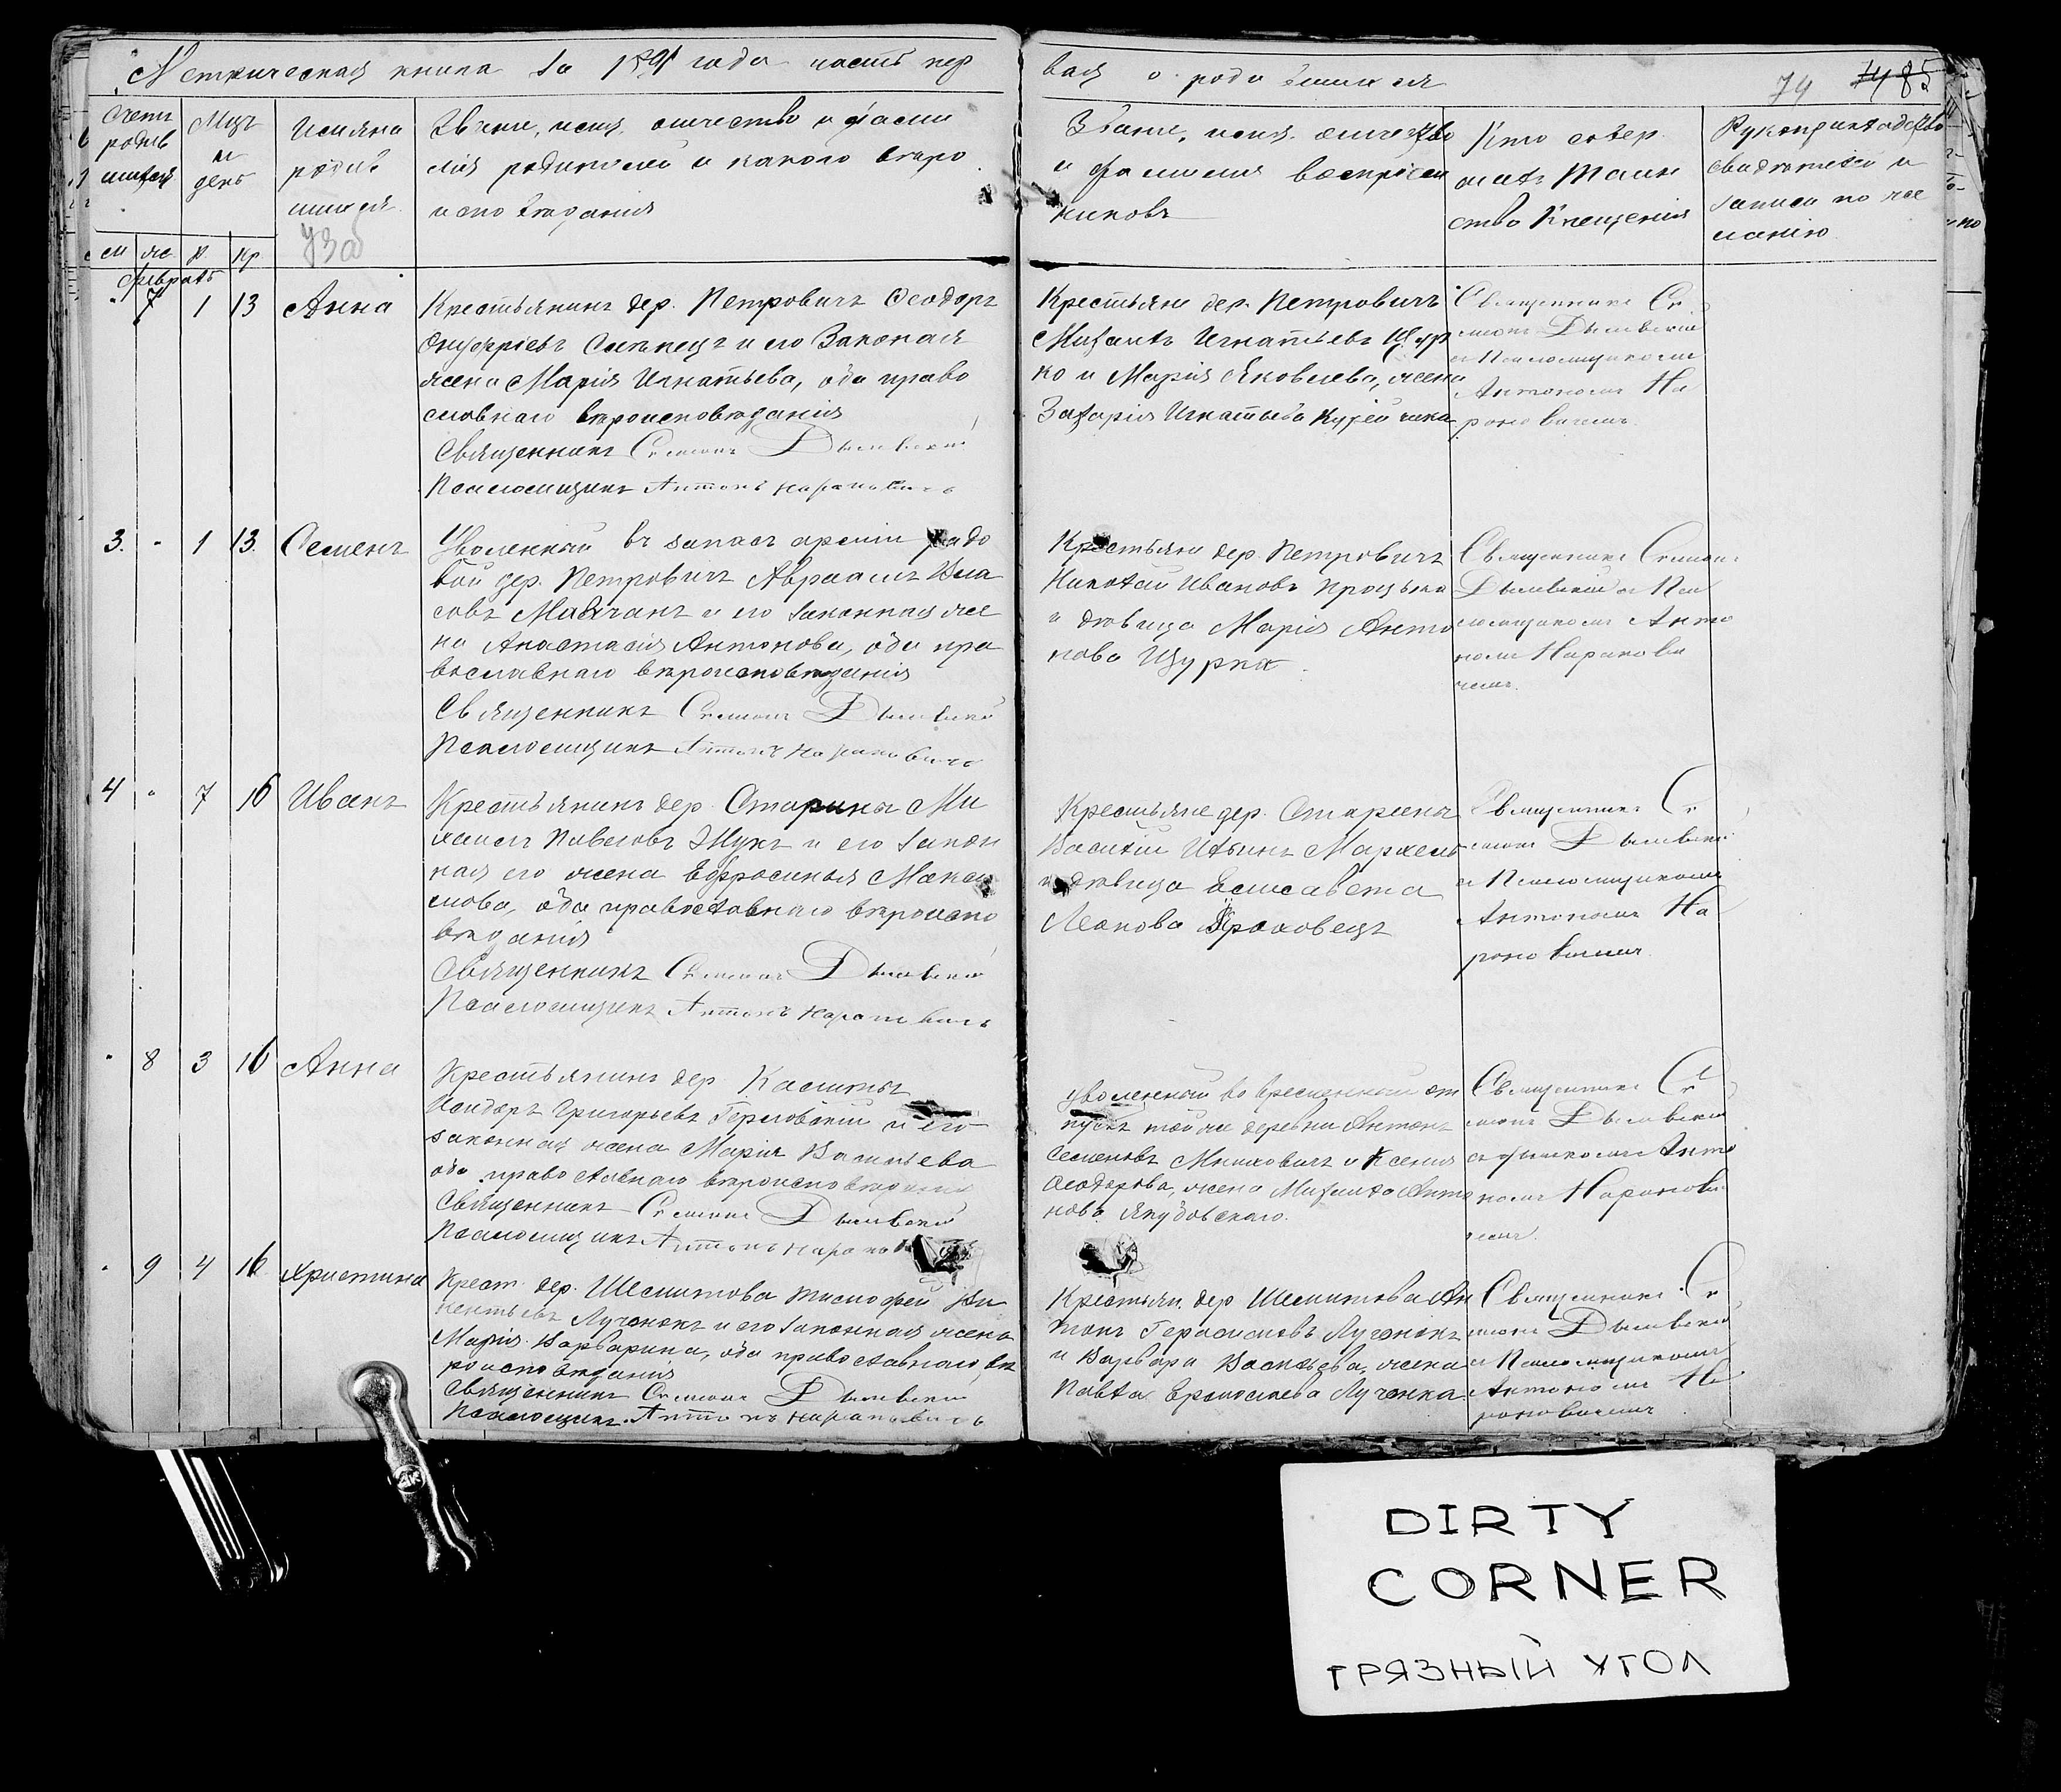 Метрическая книга за 1891 года часть пер
вая о родившихся
74
Счетъ родив шихся
Мцъ и день
Имена родив шихся
Званіе, имя, отчество и фами
лія родителей и какого веро
исповѣданія
Званіе, имя, отчество
и фамилія воспріем
никовъ
Кто совер
шалъ таин
ство Крещенія
Рукоприкладство
свидетелей
записи по же
ланію
м ж р кр
Февраль
" 7 1 13 Анна
Крестьянинъ дер. Петровичъ Феодоръ
Онуфріевъ и его Законная
жена Марія Игнатьева, оба право
славнаго вѣроисповѣданія
Священникъ Симеонъ
Псаломщикъ Антонъ Нароновичъ
Крестьяне дер. Петровичъ
Михаилъ Игнатьевъ Щур
ко и Марія Яковлева, жена
Захарія Игнатьева
Священникъ Си
меонъ
съ Псаломщикомъ
Антономъ На
роновичемъ
3. " 1 13. Семенъ
Уволенный въ запасъ арміи рядо
вой дер. Петровичъ Авраамъ Вла
совъ и его законная же
на Анастасія Антонова, оба пра
вославнаго вѣроисповѣданія
Священникъ Симеонъ
Псаломщикъ Антонъ Нароновичъ
Крестьяне дер. Петровичъ
Николай Ивановъ
и дѣвица Марія Анто
нова Щурка
Священникъ Симеонъ
съ Пса
ломщикомъ Анто
номъ Наронови
чемъ.
4 " 7 16 Иванъ
Крестьянинъ дер. Старины Ми
хаилъ Павловъ Жукъ и его закон
ная его жена Евфросинья
мова, оба православнаго вѣроиспо
вѣданія
Священникъ Симеонъ
Псаломщикъ Антонъ Нароновичъ
Крестьяне дер. Старины
Василій Ильинъ
и дѣвица Елисавета
Леонова
Священникъ Си
меонъ
съ Псаломщикомъ
Антономъ На
роновичемъ
" 8 3 16 Анна
Крестьянинъ дер.
Исидоръ Григорьевъ и его
законная жена Марія Васильева
оба православнаго вѣроисповѣданія
Священникъ Симеонъ
Псаломщикъ Антонъ
уволенный во временный от
пускъ той же деревни Антонъ
Семеновъ и Ксенія
Феодорова, жена Михаила Анто
нова Якубовскаго.
Священникъ Си
меонъ
Анто
номъ Наронови
чемъ.
" 9 4 16 Христина
Крест. дер. Шеметова Тимофей Ви
кентьевъ Лучонокъ и его законная жена
Марія, оба православнаго вѣ
роисповѣданія
Священникъ Симеонъ
Псаломщикъ Антонъ Нароновичъ
Крестьян. дер. Шеметова Ан
тонъ Герасимовъ Лучонокъ
и Варвара Васильева, жена
Павла Ермолаева Лучонка.
Священникъ Си
меонъ
съ Псаломщикомъ
Антономъ На
роновичемъ
DIRTY
CORNER
ГРЯЗНЫЙ УГОЛ